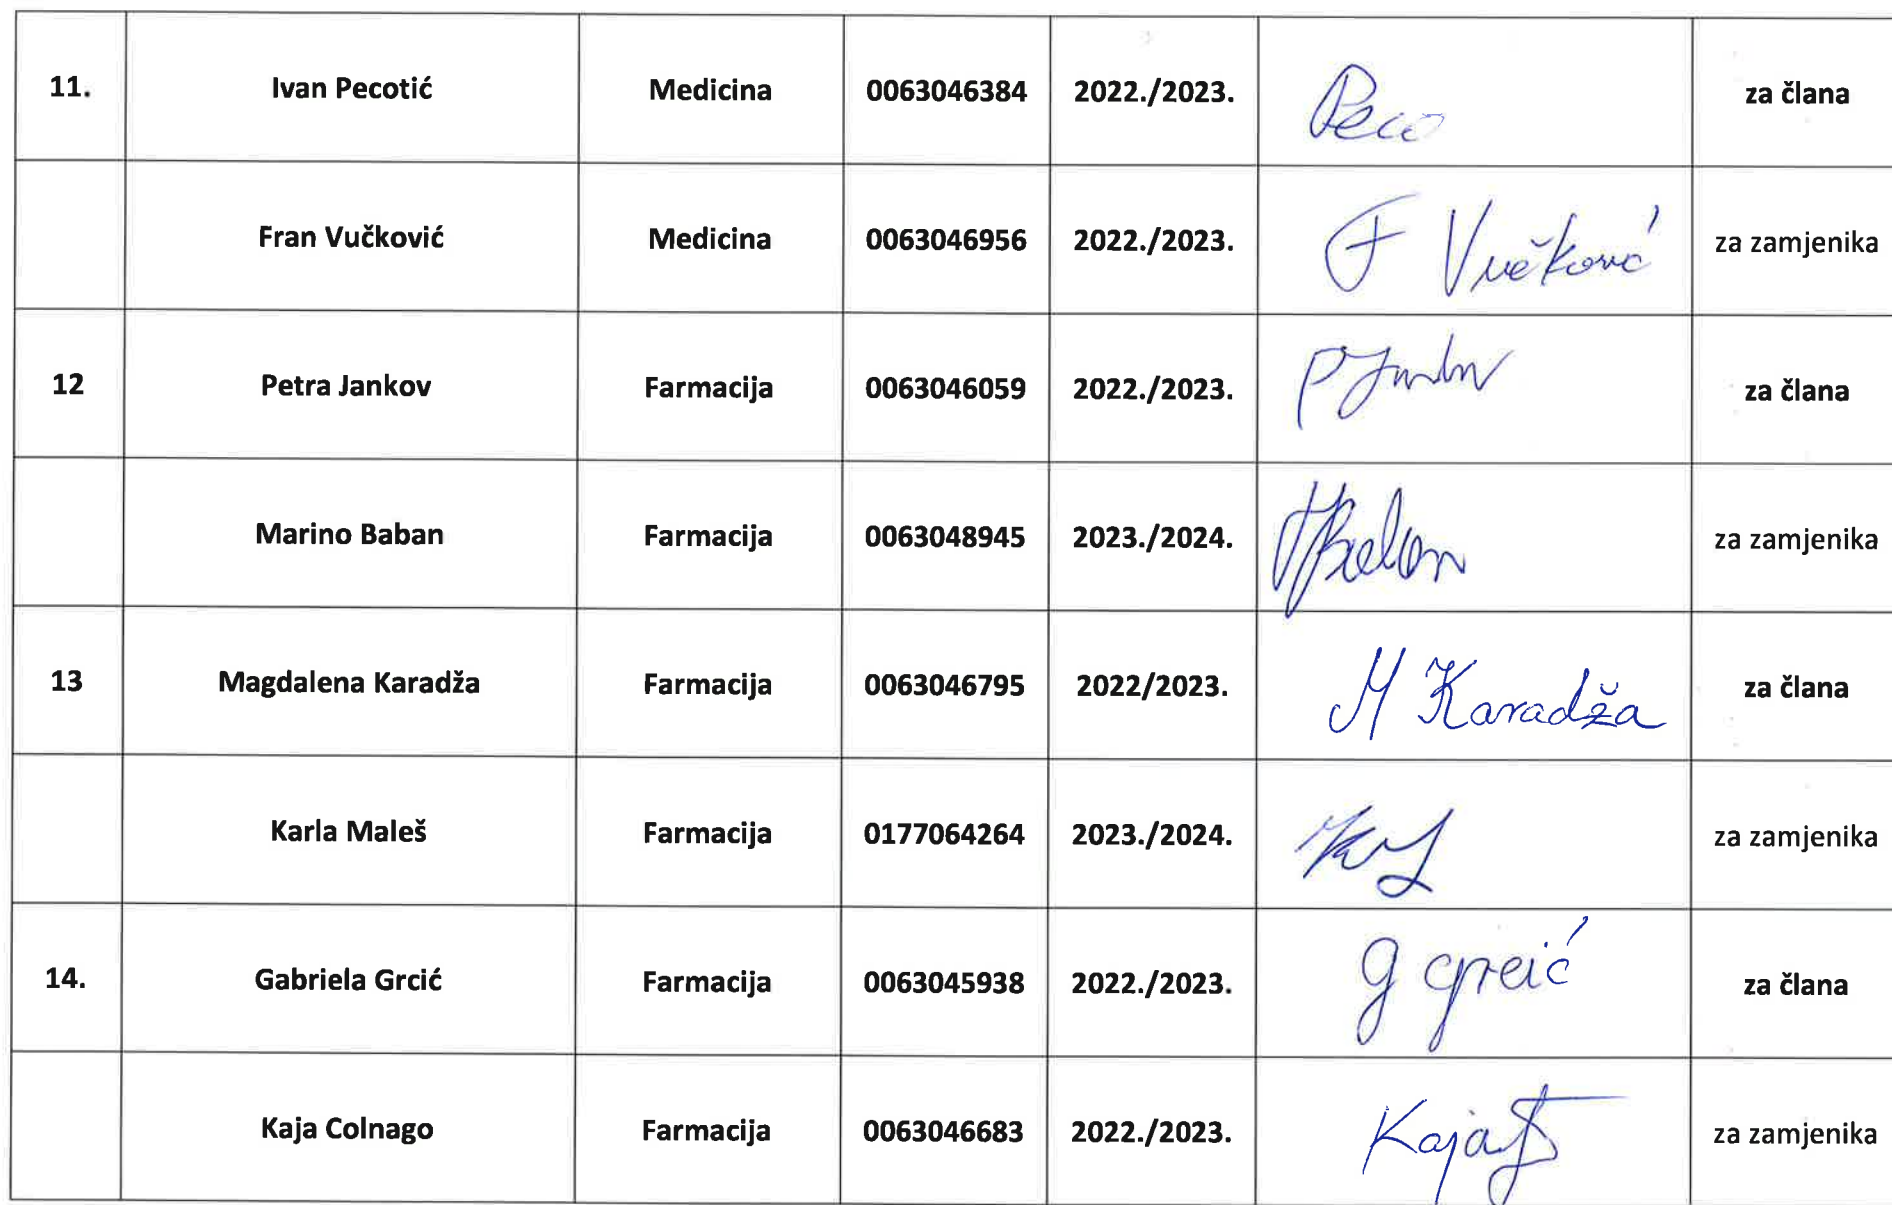 11. Ivan Pecotić Medicina 0063046384 2022./2023. Peco za člana
Fran Vučković Medicina 0063046956 2022./2023. F Vučković za zamjenika
12 Petra Jankov Farmacija 0063046059 2022./2023. za člana
Marino Baban Farmacija 0063048945 2023./2024. za zamjenika
13 Magdalena Karadža Farmacija 0063046795 2022/2023. M Karadža za člana
Karla Maleš Farmacija 0177064264 2023./2024. za zamjenika
14. Gabriela Grcić Farmacija 0063045938 2022./2023. G Grcić za člana
Kaja Colnago Farmacija 0063046683 2022./2023. Kaja za zamjenika